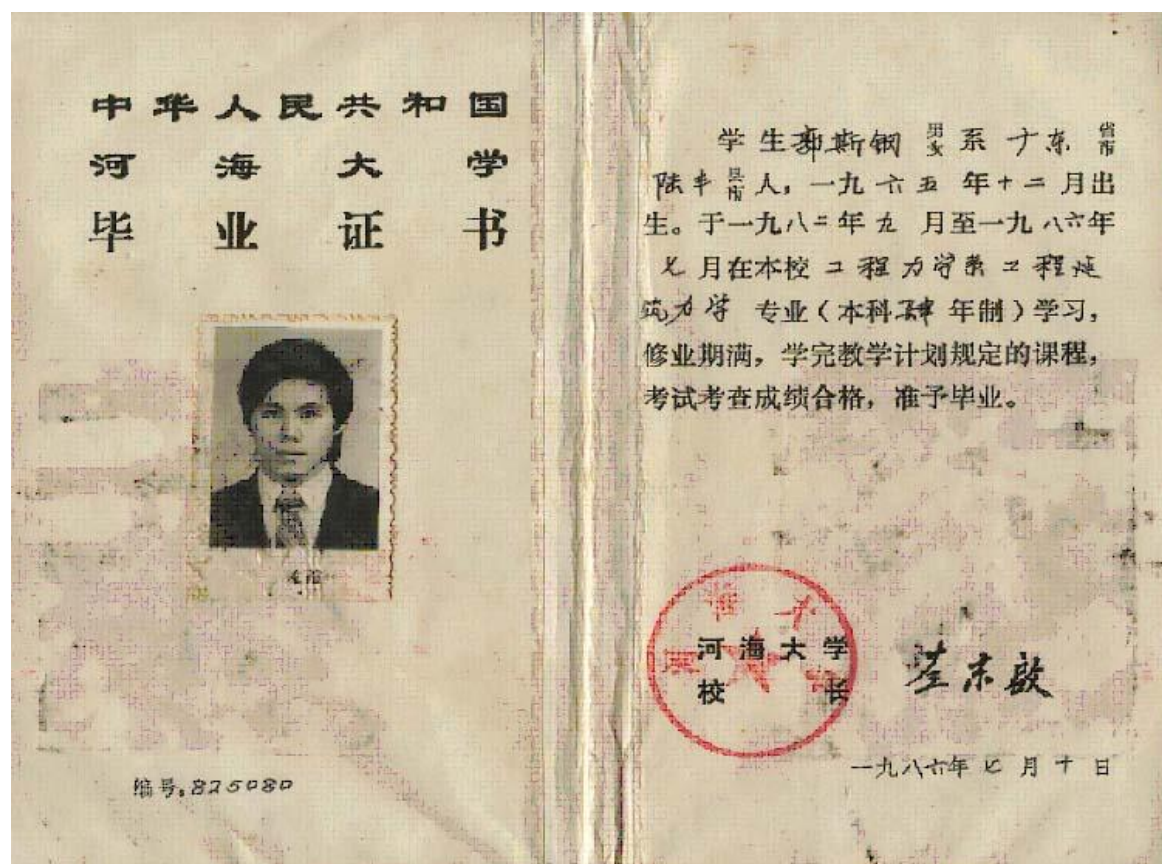 中华人民共和国
河海大学
毕业证书
编号:825080
学生郭斯钢 男女 系 广东 省市
陆丰 县市 人，一九六五年十二月出
生。于一九八二年九月至一九八六年
七月在本校工程力学系工程建
筑力学 专业（本科肆年制）学习，
修业期满，学完教学计划规定的课程，
考试考查成绩合格，准予毕业。
河海大学
河海大学
校长
一九八六年七月十日